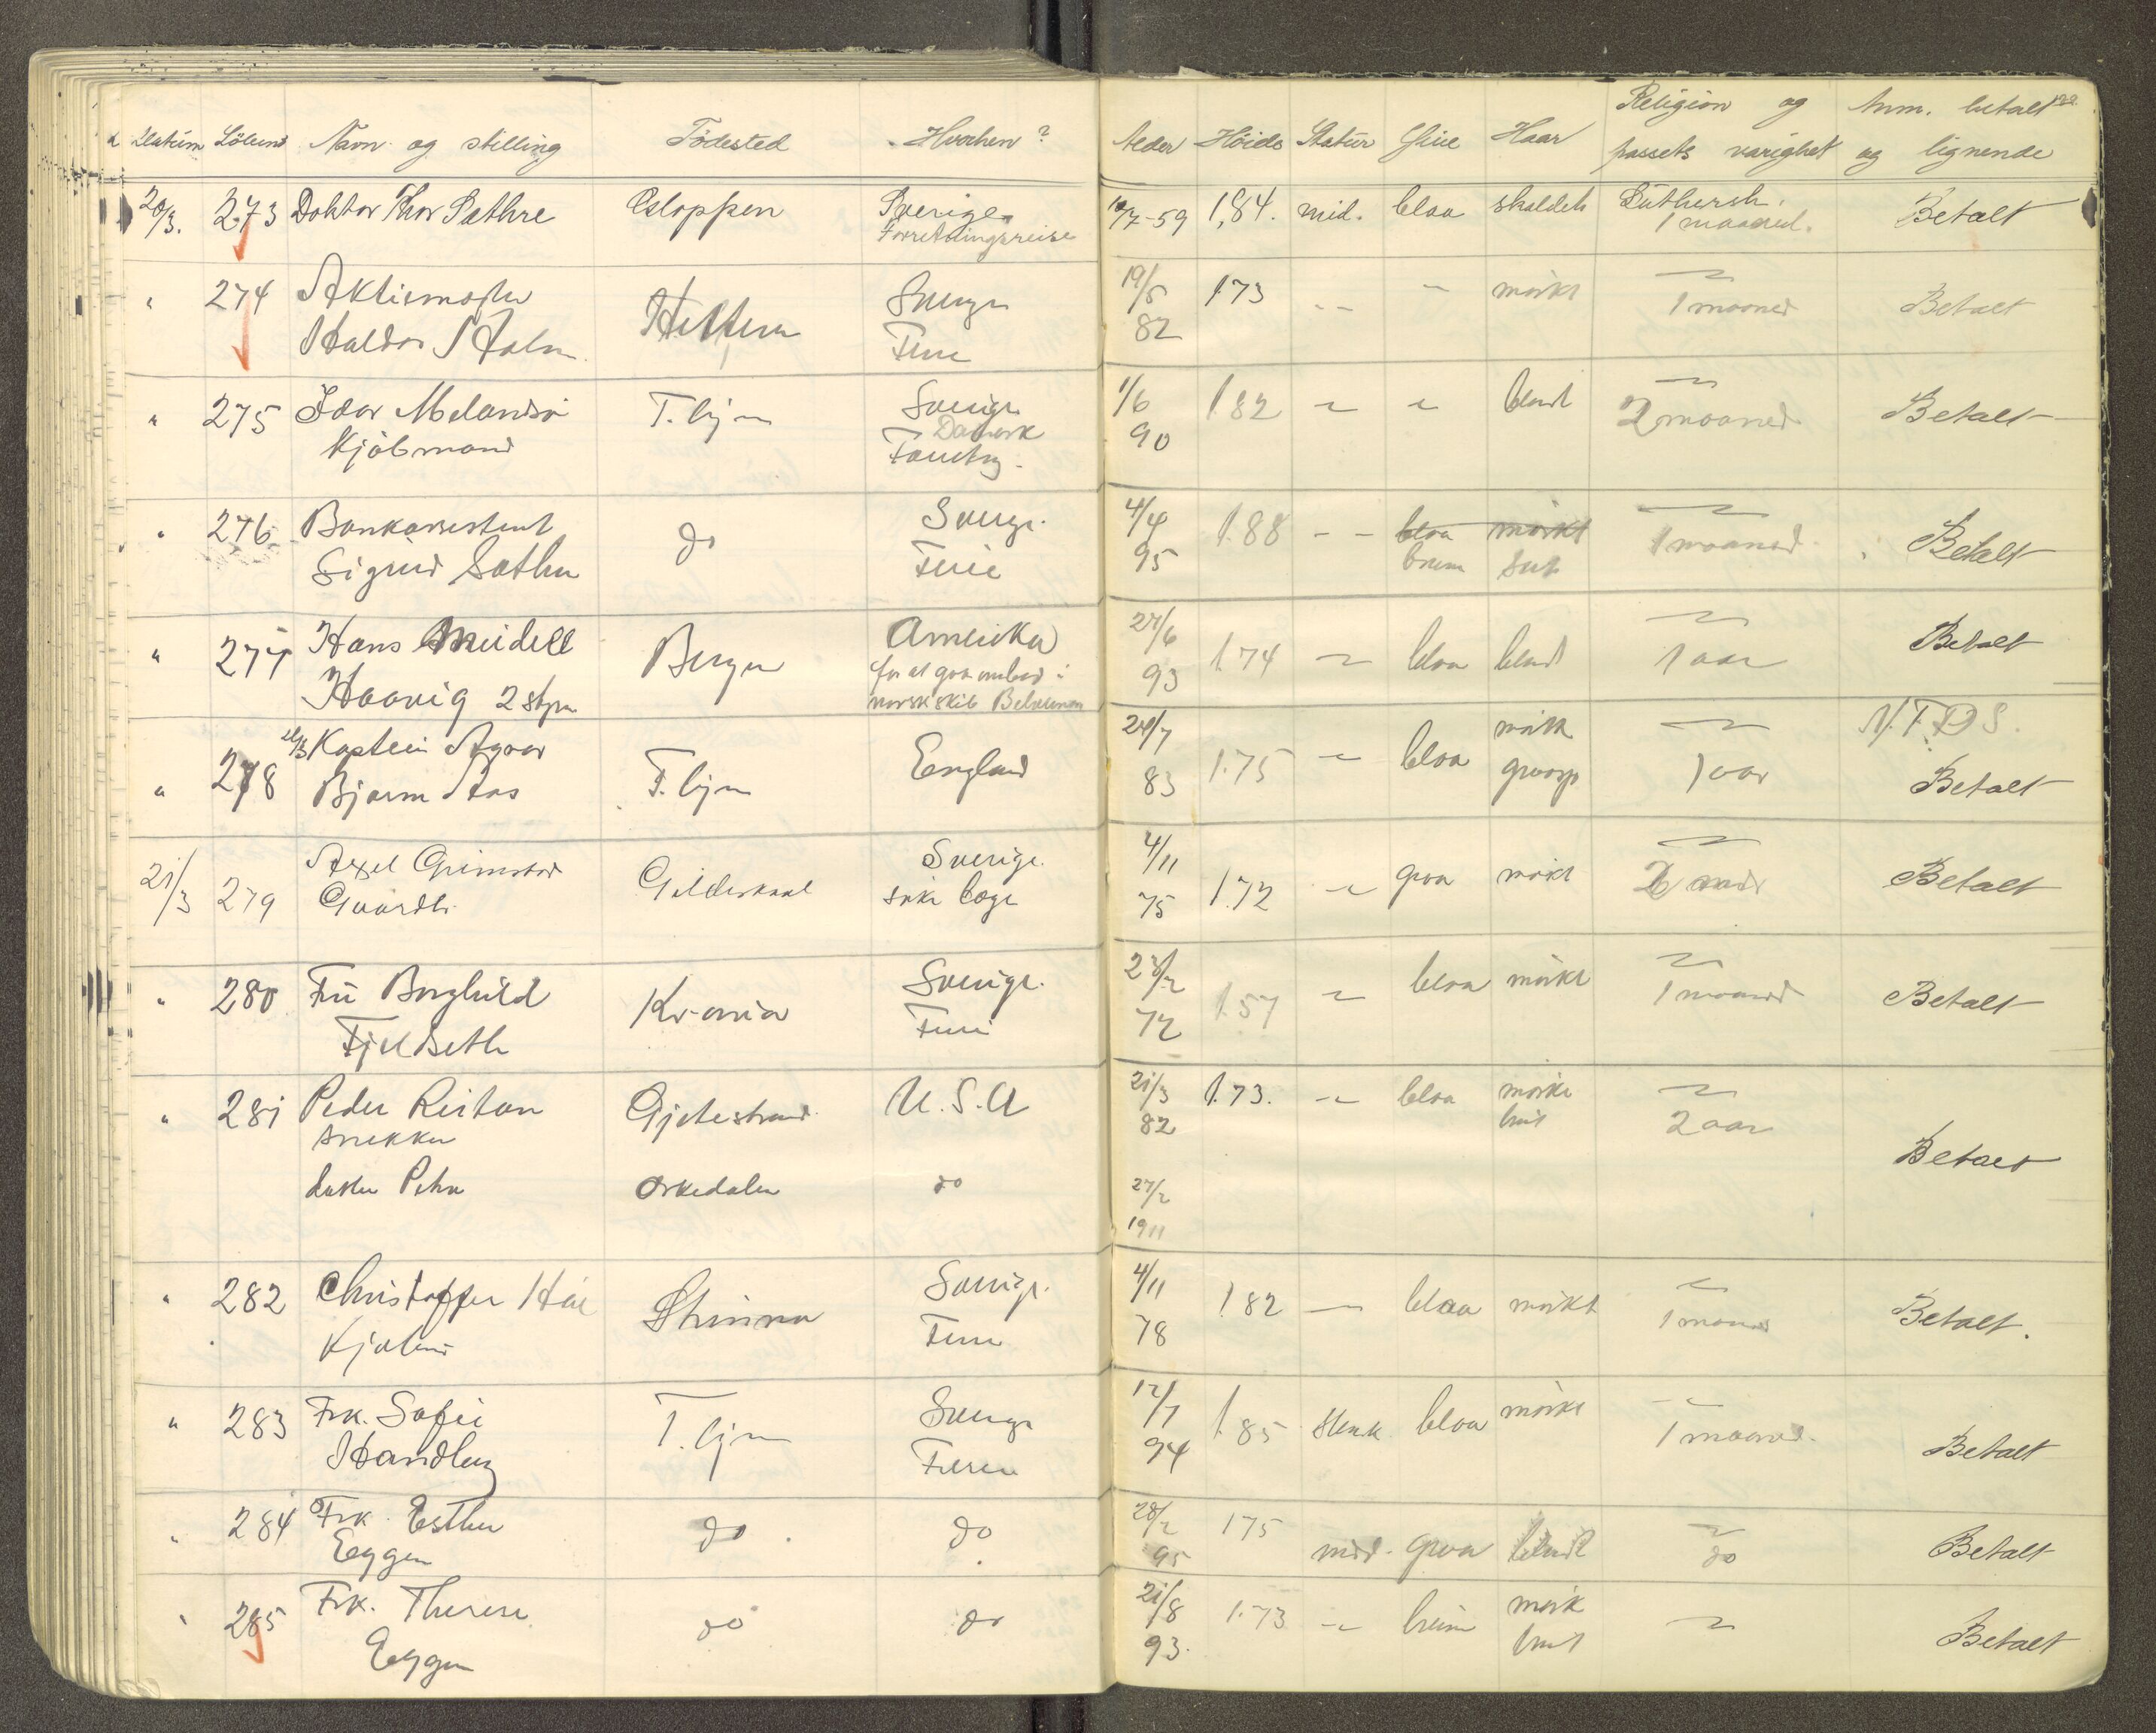 Datum Löbenr Navn og stilling Födested Hvorhen? Alder Höide Statur Öine Haar Religion og passets varighet Anm. betalt og lignende
20/3. 273 Doktor Thor Sæthre Sverige 10/7-59 1,84. mid. blaa skaldet Luthersk. Betalt
Forretningsreise 1 maaned.
" 274 Sverige 19/5 173 -"- " mörkt 1 maaned Betalt
Haldor Holm Hitteren Ferie 82
" 275 Idar Melandsö T.hjm Sverige 1/6 1.82 " " blond 2 maaned Betalt
Kjöbmand Danmark 90
" 276 Bankassistent do Sverige 4/4 1.88 - - blaa mörkt 1 maaned Betalt
Sigurd Sæther Ferie 95 brune sort
" 277 Hans Meidell Bergen Amerika 27/6 1.74 " blaa blond 1 aar Betalt
Haavig 2 styrm for at gaa ombord i 93
norsk skib
" 278 Kaptein T.hjm England 1.75 " blaa mörk 1 aar N.F.D.S.
Bjarne Aas 83 Betalt
21/3 279 Axel Grimstad Gildeskaal Sverige 4/11 1.72 " graa mörkt 2 mdr Betalt
Gaardbr. söke læge 75
" 280 Fru Borghild Kr-ania Sverige 1.57 " blaa mörkt 1 maaned Betalt
Fjeldseth Ferie 72
" 281 Peder Reitan U.S.A 21/3 1.73. " blaa mörke 2 aar Betalt
snekker 82 brut
datter Petra Orkedalen do 27/2
1911
" 282 Christoffer Strinna Sverige. 4/11 182 " blaa mörkt 1 maaned Betalt.
Ferie 78
" 283 Frk. Sofie T.hjm Sverige 1.85 slank blaa mörkt 1 maaned. Betalt
Handberg Ferie 94
" 284 Frk. Esther do do 28/2 175 mid. graa blond do Betalt
Eggen 95
" 285 Frk. Therese do do 21/8 1.73 " brune mörk " Betalt
Eggen 93. brut